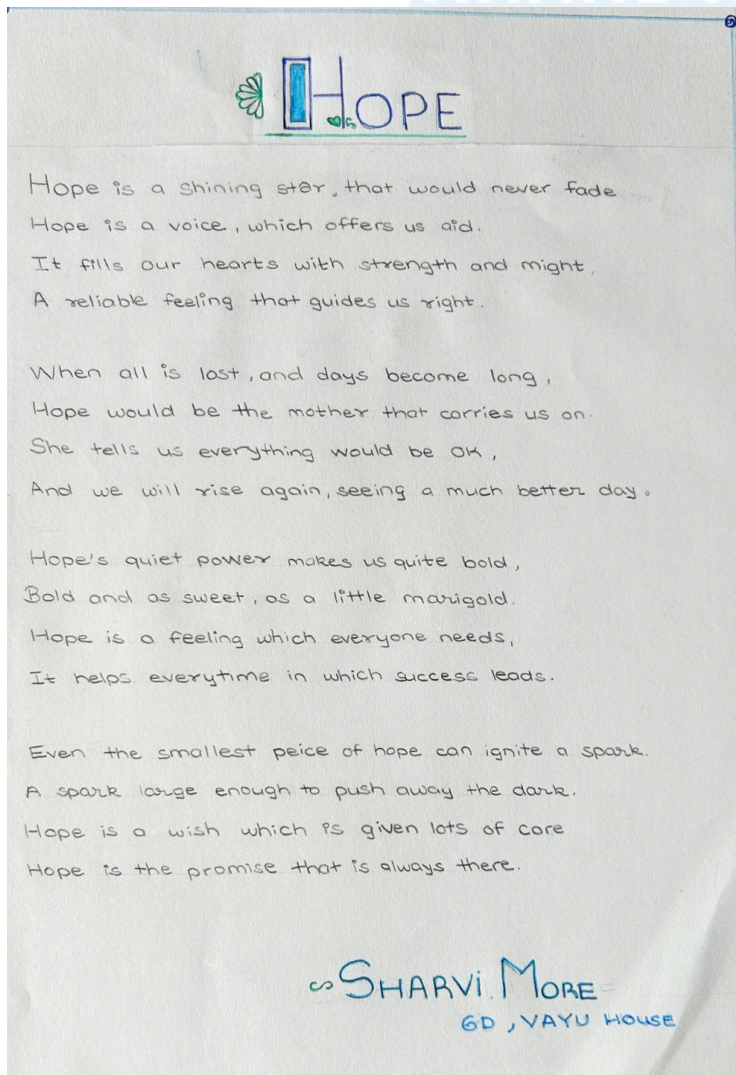 HOPE
Hope is a shining star, that would never fade
Hope is a voice, which offers us aid.
It fills our hearts with strength and might,
A reliable feeling that guides us right.
When all is lost, and days become long,
Hope would be the mother that carries us on.
She tells us everything would be OK,
And we will rise again, seeing a much better day.
Hope's quiet power makes us quite bold,
Bold and as sweet, as a little marigold.
Hope is a feeling which everyone needs,
It helps everytime in which success leads.
Even the smallest peice of hope can ignite a spark.
A spark large enough to push away the dark.
Hope is a wish which is given lots of care
Hope is the promise that is always there.
~ SHARVI. MORE
6D, VAYU HOUSE